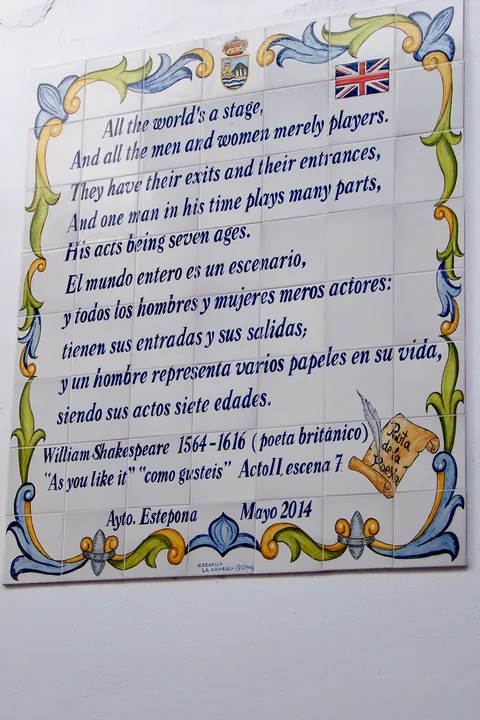 All the world's a stage,
And all the men and women merely players.
They have their exits and their entrances,
And one man in his time plays many parts,
His acts being seven ages.
El mundo entero es un escenario,
y todos los hombres y mujeres meros actores:
tienen sus entradas y sus salidas;
y un hombre representa varios papeles en su vida,
siendo sus actos siete edades.
William Shakespeare 1564-1616 (poeta británico)
"As you like it" "como gusteis" Acto II, escena 7
Ruta
de la
Poesía
Ayto. Estepona Mayo 2014
CERAMICA